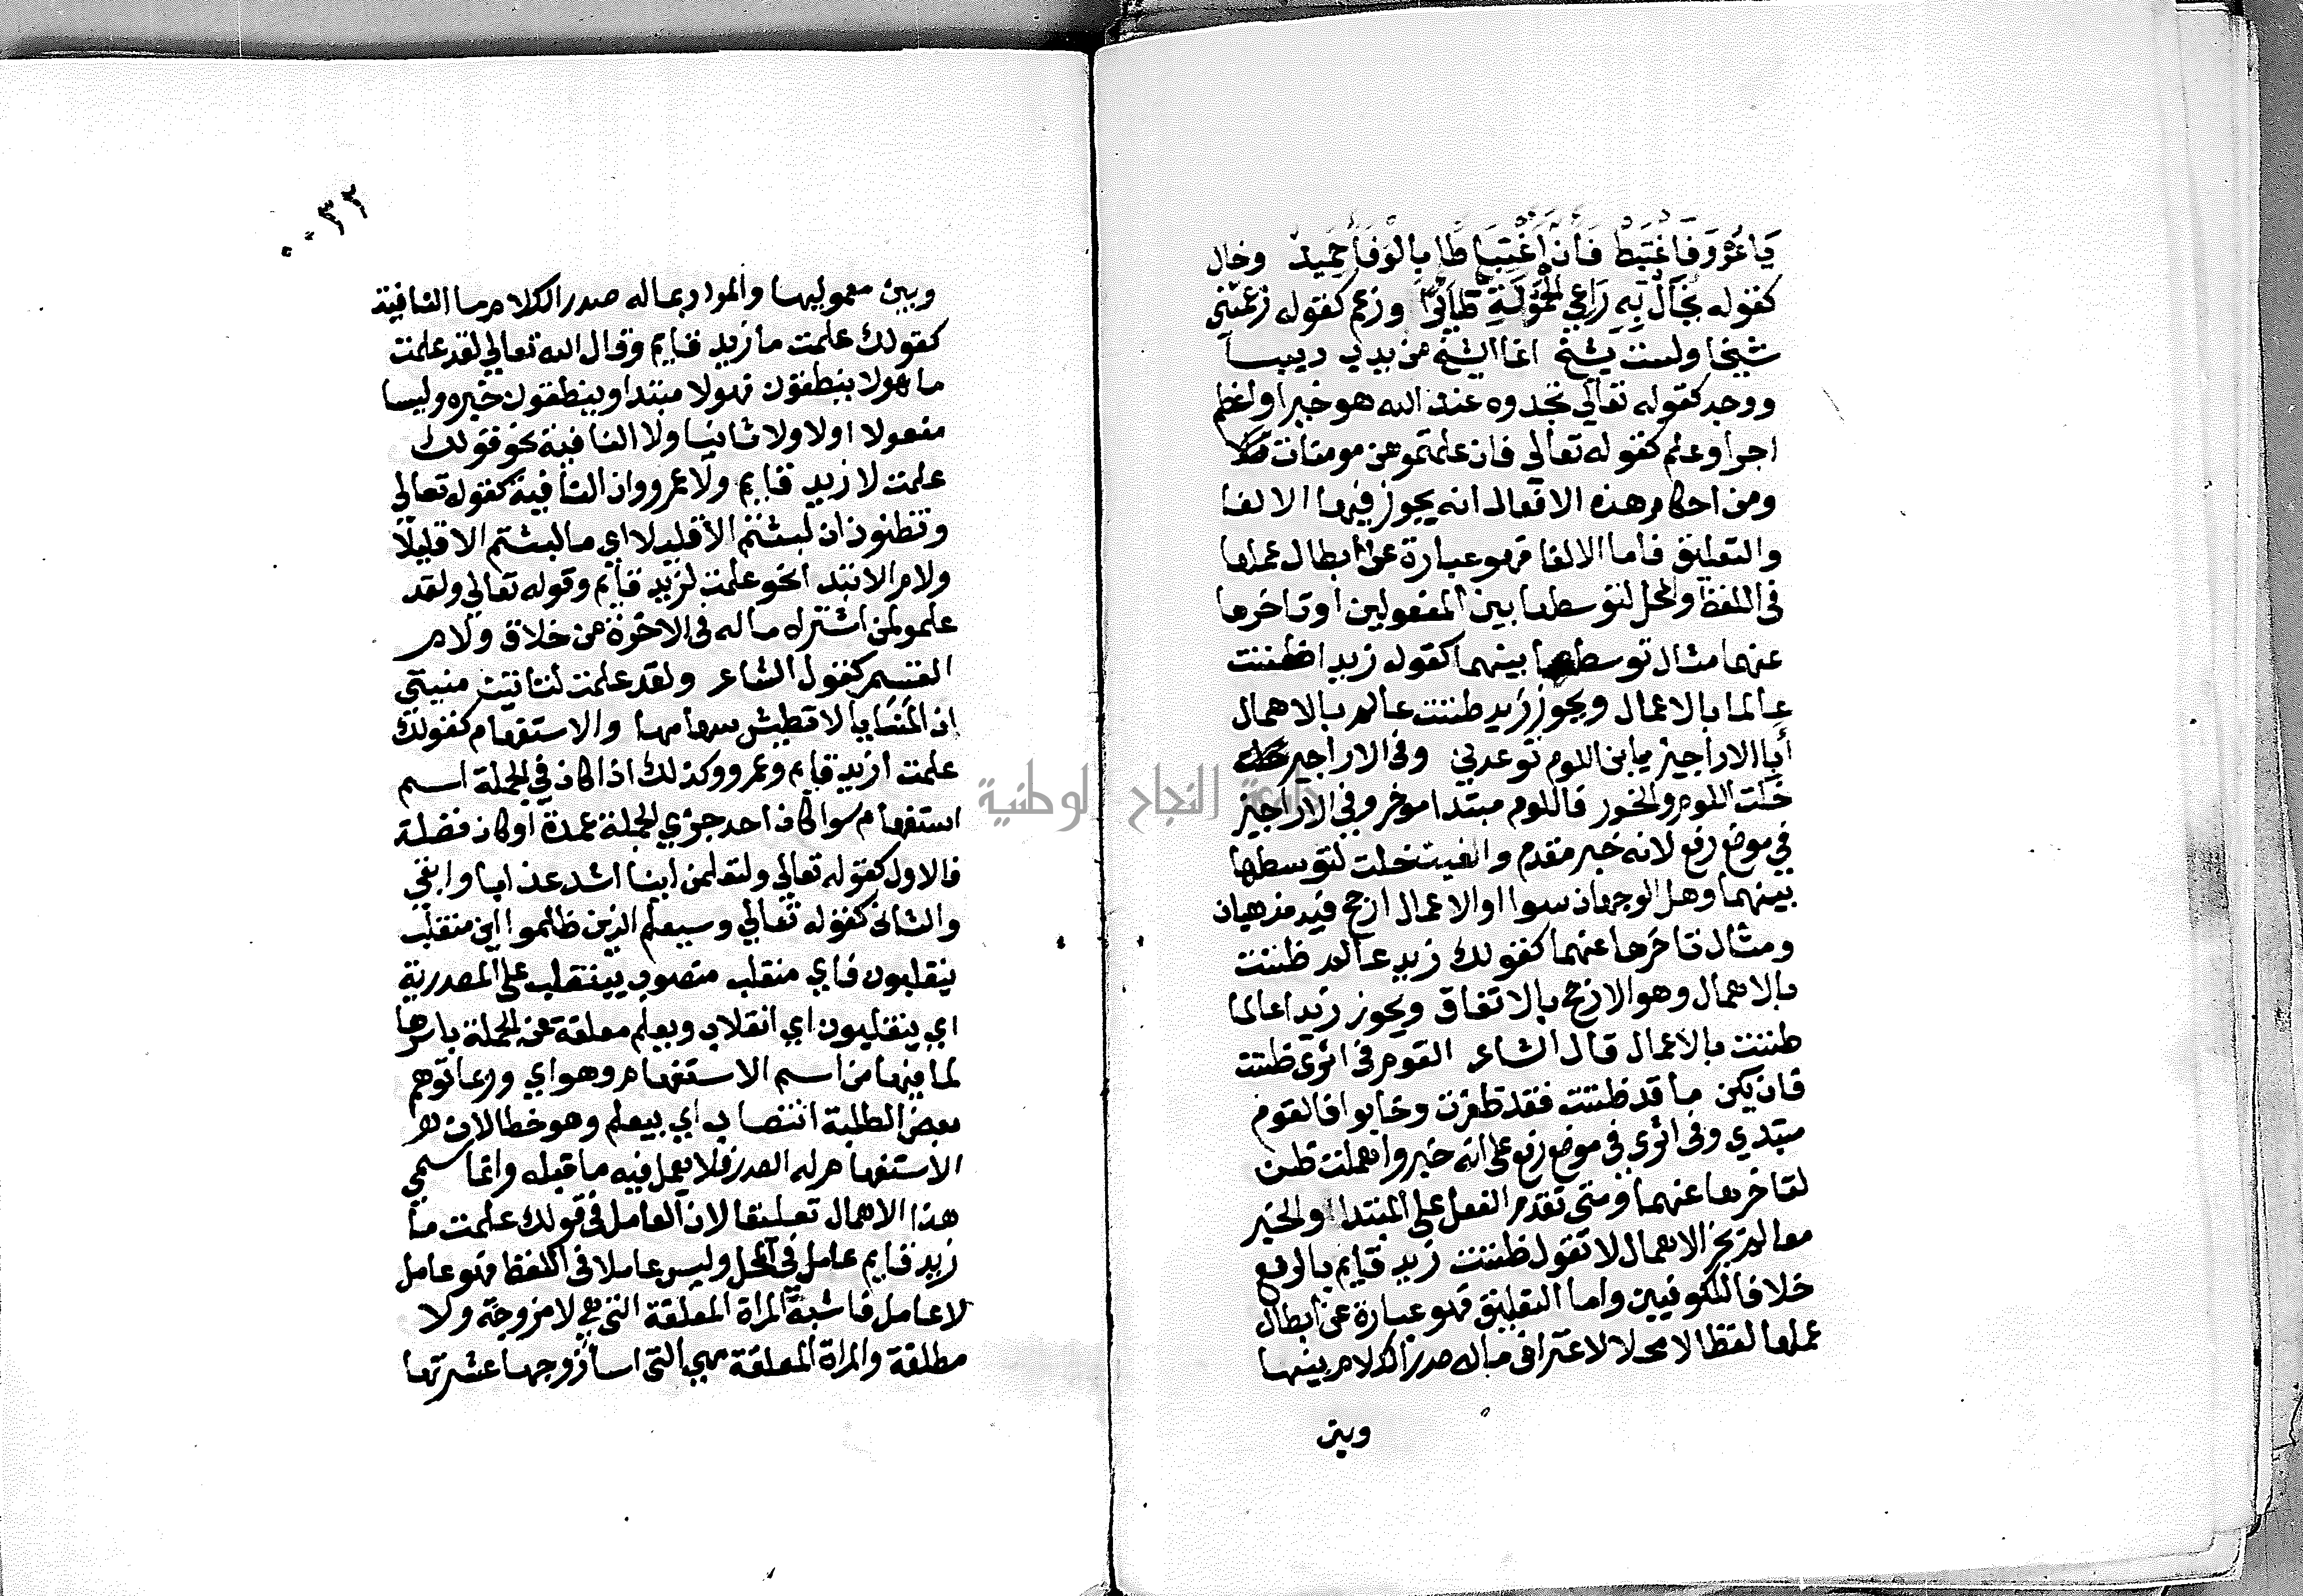 يَا عُرْوَ فَاغْتَبِطْ فَإِنَّ اغْتِبَاطًا بِالْوَفَاءِ حَمِيدُ وخال
كقوله يخال به راعي الحمولة طائرا وزعم كقوله زعمتني
شيخا ولست بشيخ انما الشيخ من يدب دبيبا
ووجد كقوله تعالي تجدوه عند الله هو خيرا واعظم
اجرا وعلم كقوله تعالي فان علمتموهن مومنات فلا
ومن احكام هذه الافعال انه يجوز فيها الالغا
والتعليق فاما الالغا فهو عبارة عن ابطال عملها
في اللفظ والمحل لتوسطها بين المفعولين او تاخرها
عنهما مثال توسطها بينهما كقوله زيدا ظننت
عالما بالاعمال ويجوز زيد ظننت عالم بالاهمال
أبا الاراجيز يا بن اللوم توعدني وفي الاراجيز
خلت اللوم والخور فاللوم مبتدا موخر وفي الاراجيز
في موضع رفع لانه خبر مقدم والغيت خلت لتوسطها
بينهما وهل الوجهان سوا او الاعمال ارجح فيه مذهبان
ومثال تاخرها عنهما كقولك زيد عالم ظننت
بالاهمال وهو الارجح بالاتفاق ويجوز زيدا عالما
ظننت بالاعمال قال الشاعر القوم في اثري ظننت
فان يكن ما قد ظننت فقد ظفرت وخابوا فالقوم
مبتدي وفي اثري في موضع رفع علي انه خبر واهملت ظن
لتاخرها عنهما ومتي تقدم الفعل علي المبتدا والخبر
معا لم يجز الاهمال لا تقول ظننت زيد قايم بالرفع
خلافا للكوفيين واما التعليق فهو عبارة عن ابطال
عملها لفظا لا محلا لاعتراض ماله صدر الكلام بينها
وبين
٣٢
وبين معموليها والمراد بماله صدر الكلام ما النافية
كقولك علمت ما زيد قايم وقال الله تعالي لقد علمت
ما هولا ينطقون فهولا مبتدا وينطقون خبره وليسا
مفعولا اولا ولا ثانيا ولا النافية نحو قولك
علمت لا زيد قايم ولا عمرو وان النافية كقوله تعالي
وتظنون ان لبثتم الا قليلا اي ما لبثتم الا قليلا
ولام الابتدا نحو علمت لزيد قايم وقوله تعالي ولقد
علمو لمن اشتراه ماله في الاخرة من خلاق ولام
القسم كقول الشاعر ولقد علمت لتاتين منيتي
ان المنايا لا تطيش سهامها والاستفهام كقولك
علمت ازيد قايم وعمرو وكذلك اذا كان في الجملة اسم
استفهام سوا كان احد جزي الجملة عمدة او كان فضلة
فالاول كقوله تعالي ولتعلمن اينا اشد عذابا وابقي
والثاني كقوله تعالي وسيعلم الذين ظلموا اي منقلب
ينقلبون فاي منقلب منصوب بينقلب علي المصدرية
اي ينقلبون اي انقلاب ويعلم معلقة عن الجملة باسرها
لما فيها من اسم الاستفهام وهو اي وربما توهم
بعض الطلبة انتصاب اي بيعلم وهو خطا لان
الاستفهام له الصدر فلا يعمل فيه ما قبله وانما سمي
هذا الاهمال تعليقا لان العامل في قولك علمت ما
زيد قايم عامل في المحل وليس عاملا في اللفظ فهو عامل
لا عامل فاشبه المراة المعلقة التي هي لا مزوجة ولا
مطلقة والمراة المعلقة هي التي اسا زوجها عشرتها
جامعة النجاح الوطنية